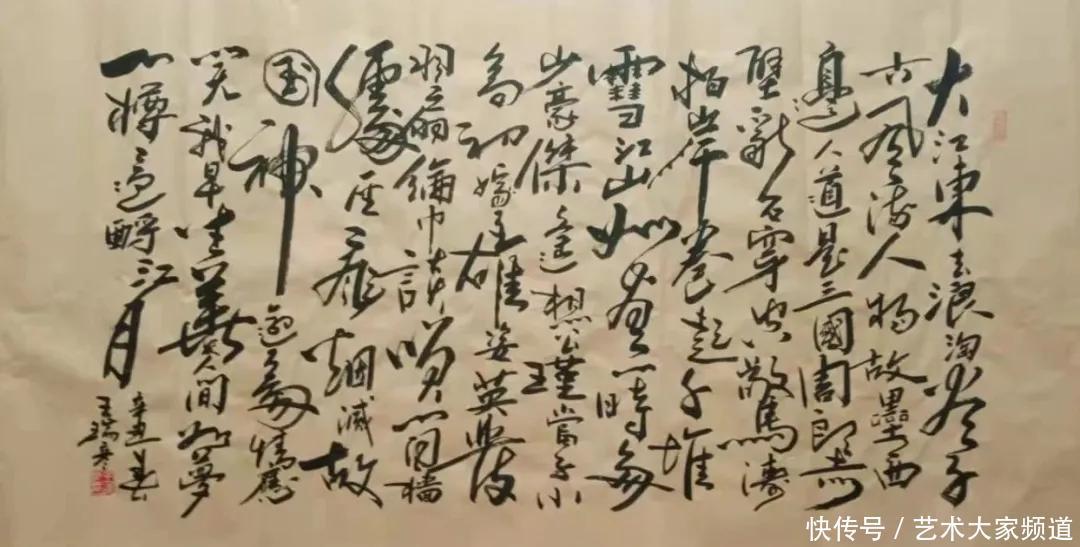 大江東去浪淘尽千
古風流人物故壘西
邊人道是三國周郎赤
壁亂石穿空驚濤
拍岸卷起千堆
雪江山如畫一時多
少豪傑遙想公瑾當年小
喬初嫁了雄姿英發
羽扇綸巾談笑間檣
櫓灰飛烟滅故
国神遊多情應
笑我早生華髮人間如夢
一樽還酹江月
辛丑
王瑞
快传号／艺术大家频道